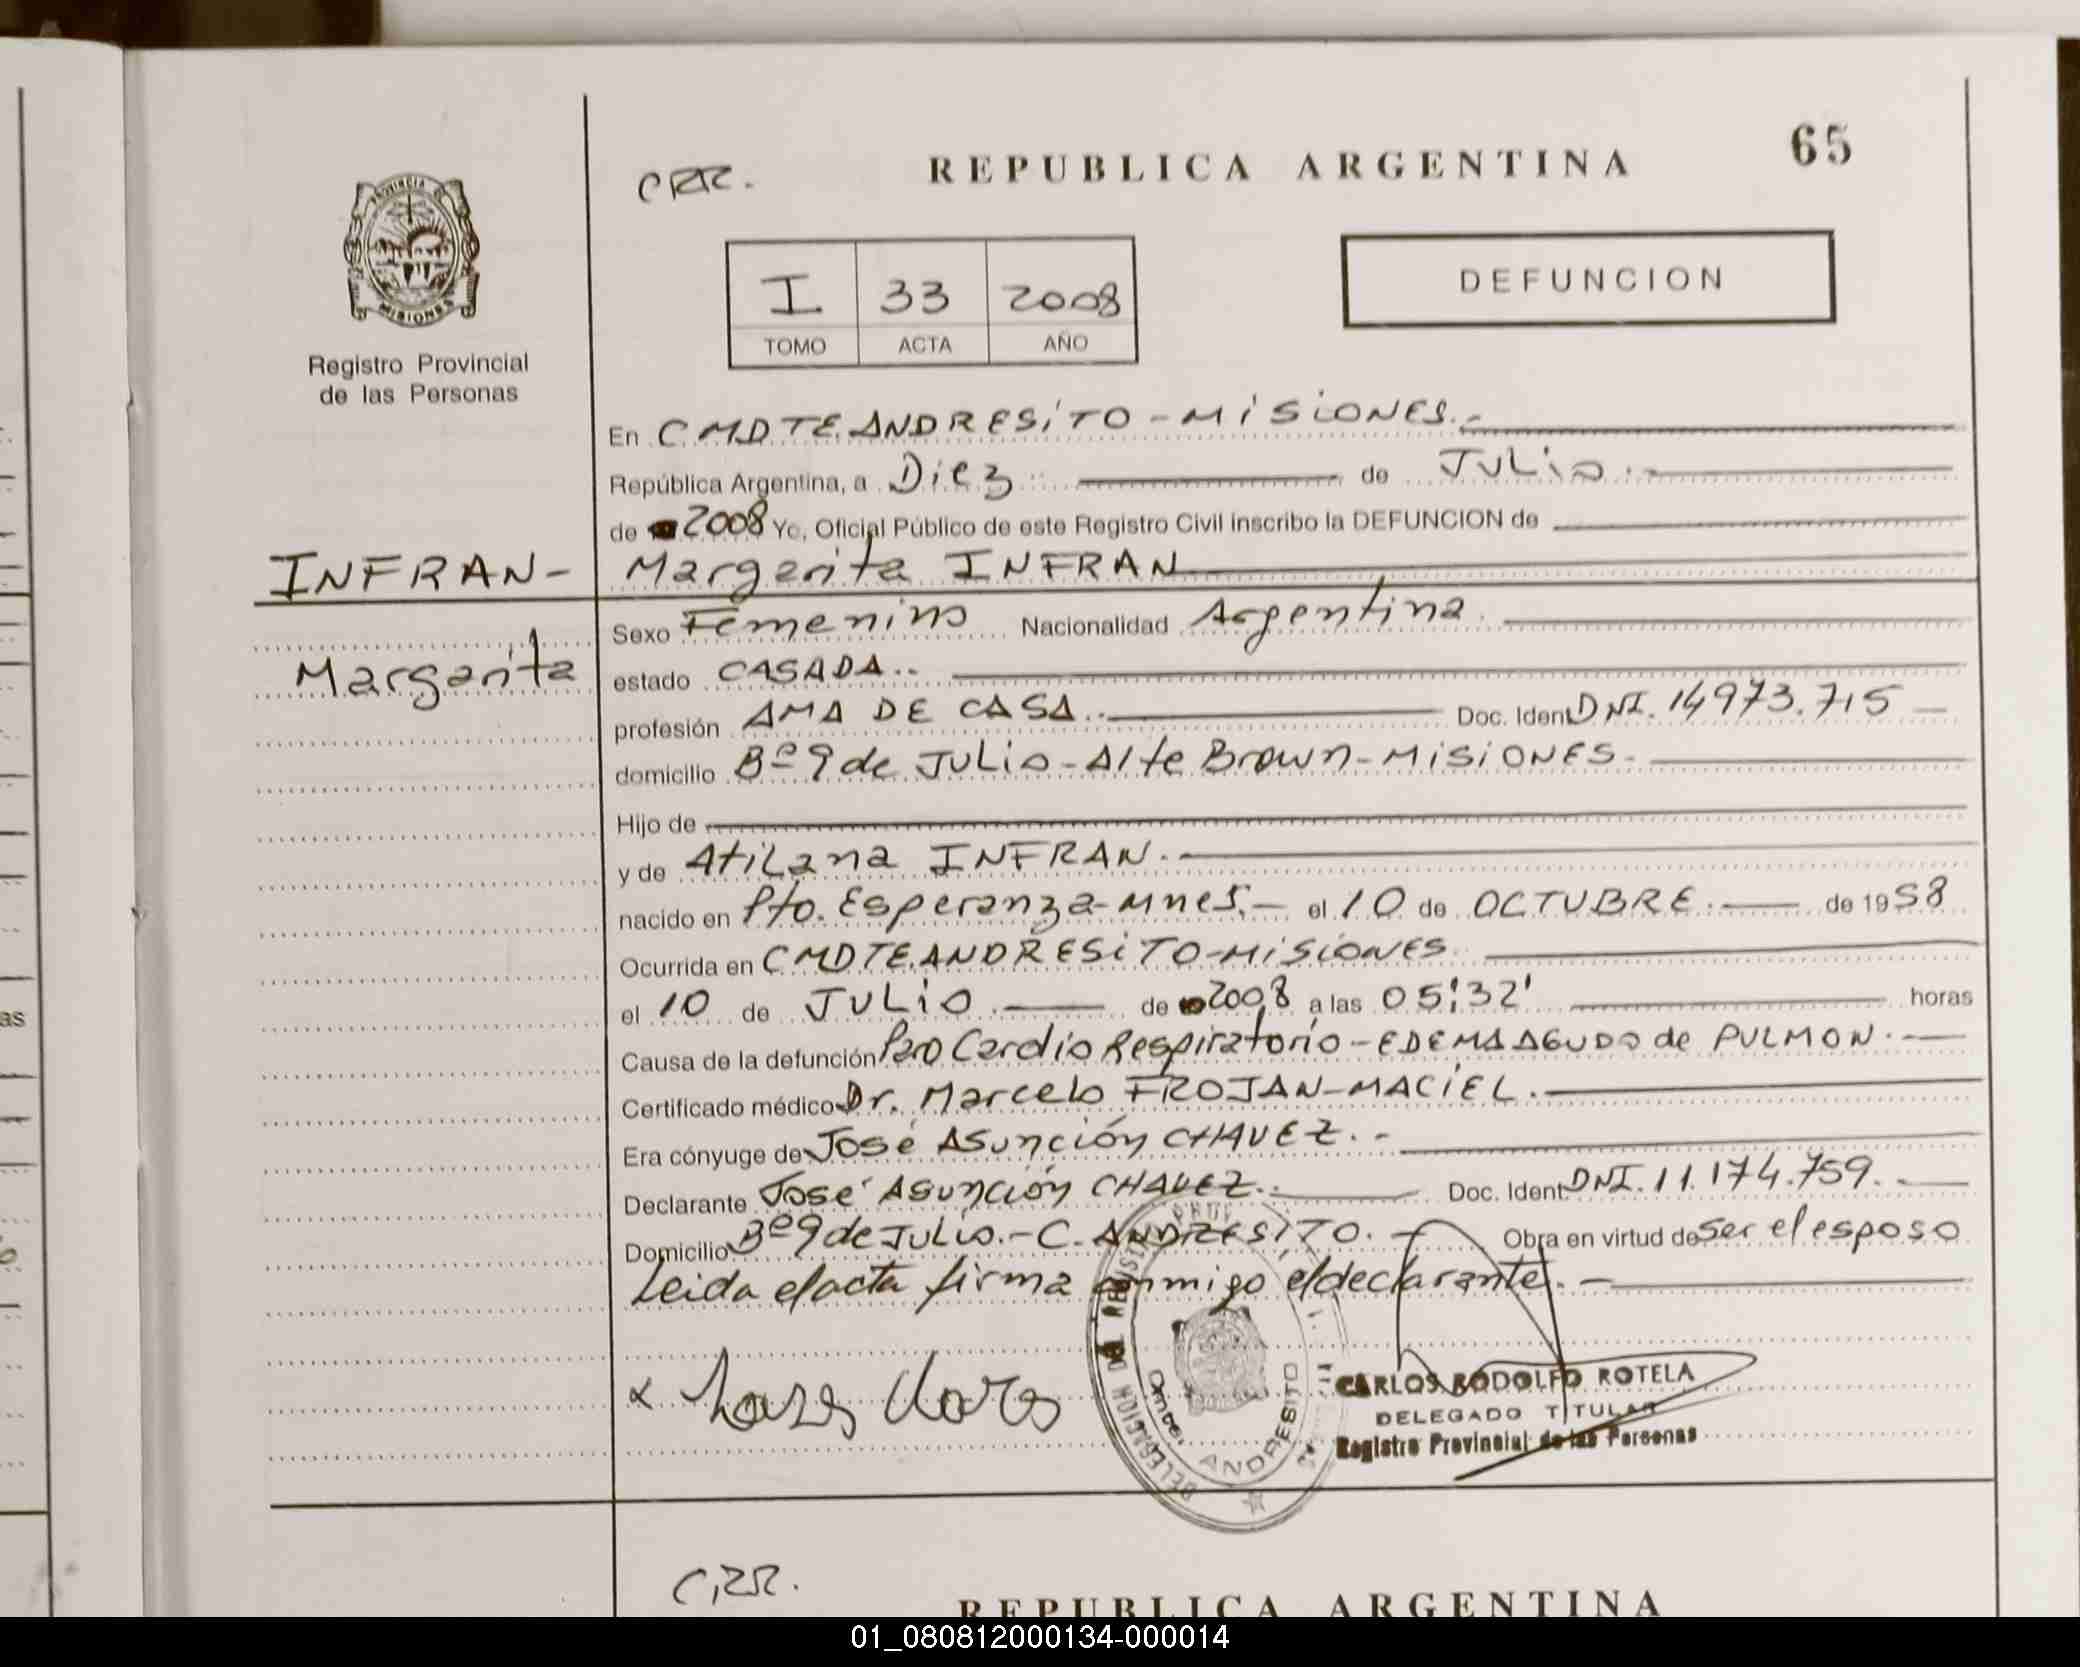 65
CRR.
REPUBLICA ARGENTINA
PROVINCIA
MISIONES
Registro Provincial
de las Personas
I 33 2008
TOMO ACTA AÑO
DEFUNCION
En CMDTE. ANDRESiTO - MiSiONES.-
República Argentina, a Diez de JULio.-
de 2008 Yo, Oficial Público de este Registro Civil inscribo la DEFUNCION de
INFRAN- Margarita INFRAN
Margarita
Sexo Femenino Nacionalidad Argentina.
estado CASADA..
profesión AMA DE CASA.. Doc. Ident DNI. 14973.715
domicilio Bº 9 de JULio - Alte Brown - MiSiONES.
Hijo de
y de Atilana INFRAN.
nacido en Pto. Esperanza - Mnes.- el 10 de OCTUBRE. de 1958
Ocurrida en CMDTE. ANDRESiTO - MiSiONES.
el 10 de JULiO. de 2008 a las 05:32' horas
Causa de la defunción Paro Cardio Respiratorio - EDEMA AGUDO de PULMON.
Certificado médico Dr. Marcelo FROJAN - MACiEL.
Era cónyuge de José Asunción CHAVEZ.-
Declarante José Asunción CHAVEZ. Doc. Ident DNI. 11.174.759.
Domicilio Bº 9 de JULio.- C. ANDRESiTO. Obra en virtud de Ser el esposo
Leida el acta firma conmigo el declarante.
DELEGACION DEL REGISTRO
ANDRESITO
CARLOS RODOLFO ROTELA
DELEGADO TITULAR
Registro Provincial de las Personas
CRR.
REPUBLICA ARGENTINA
01_080812000134-000014